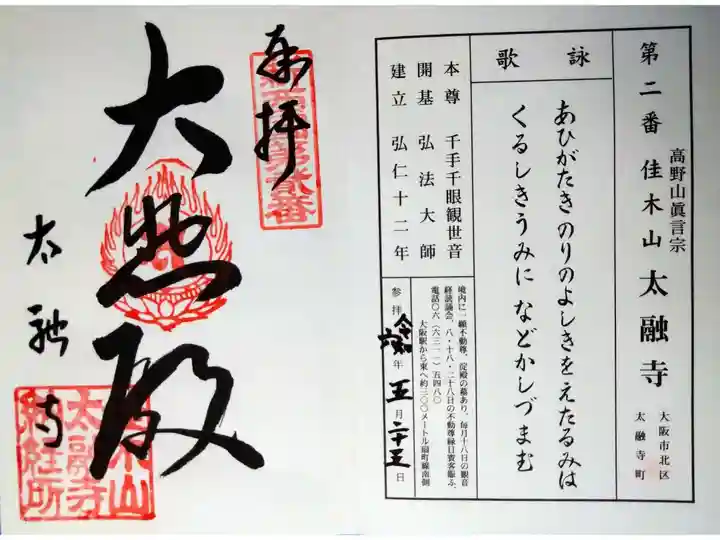 高野山眞言宗
第二番 佳木山 太融寺
大阪市北区
太融寺町
詠歌
あひがたきのりのよしきをえたるみは
くるしきうみになどかしづまむ
本尊 千手千眼観世音
開基 弘法大師
建立 弘仁十二年
境内に一願不動尊、淀殿の墓あり、毎月十八日の観音
経読誦会、八・十八・二十八日の不動尊縁日賽客賑ふ、
電話〇六(六三一一)五四八〇
大阪駅から東へ約三〇〇メートル扇町線南側
参拝 令和六年五月二十五日
奉拝
第弐番
大悲殿
太融寺
佳木山
太融寺
納経所